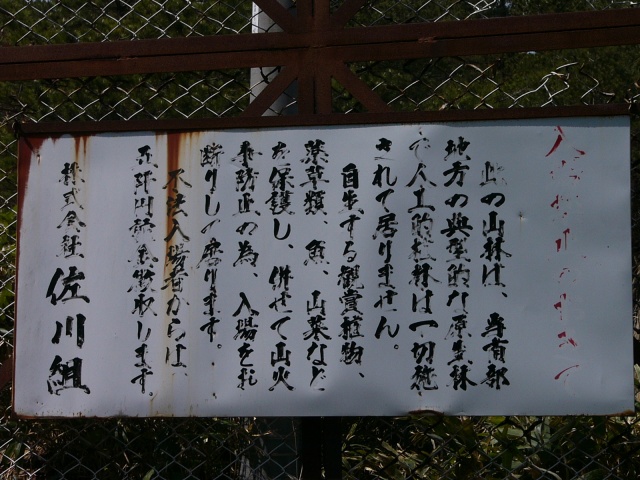 此の山林は、
地方の典型的な原生林
で人工的植林は一切施
されて居りません。
自生する観賞植物、
薬草類、魚、山菜など
を保護し、併せて山火
事防止の為、入場をお
断りして居ります。
不法入場者からは
します。
株式会社 佐川組